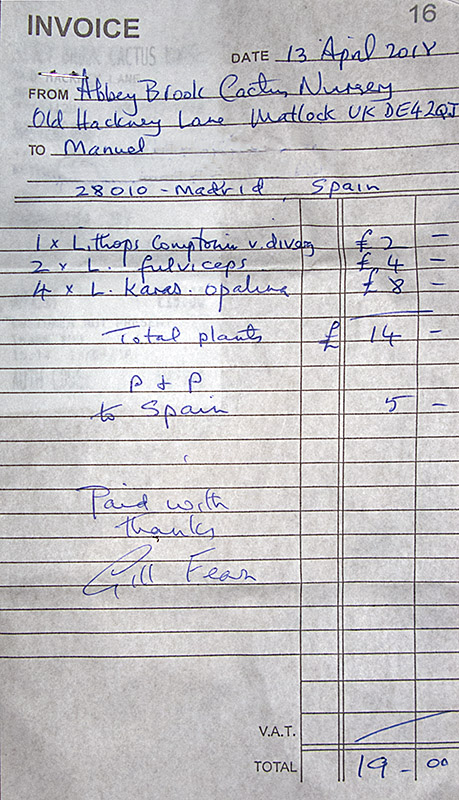 16
INVOICE
DATE 13 April 2018
FROM Abbey Brook Cactus Nursery
Old Hackney Lane Matlock UK DE4 2QJ
TO Manuel
28010 - Madrid Spain
1 x Lithops Comptonii v. £ 2 -
2 x L. fulviceps £ 4 -
4 x L. Karas. opalina £ 8 -
Total plants £ 14 -
P & P
to Spain 5 -
Paid with
thanks
Gill Fearn
V.A.T.
TOTAL 19 - 00